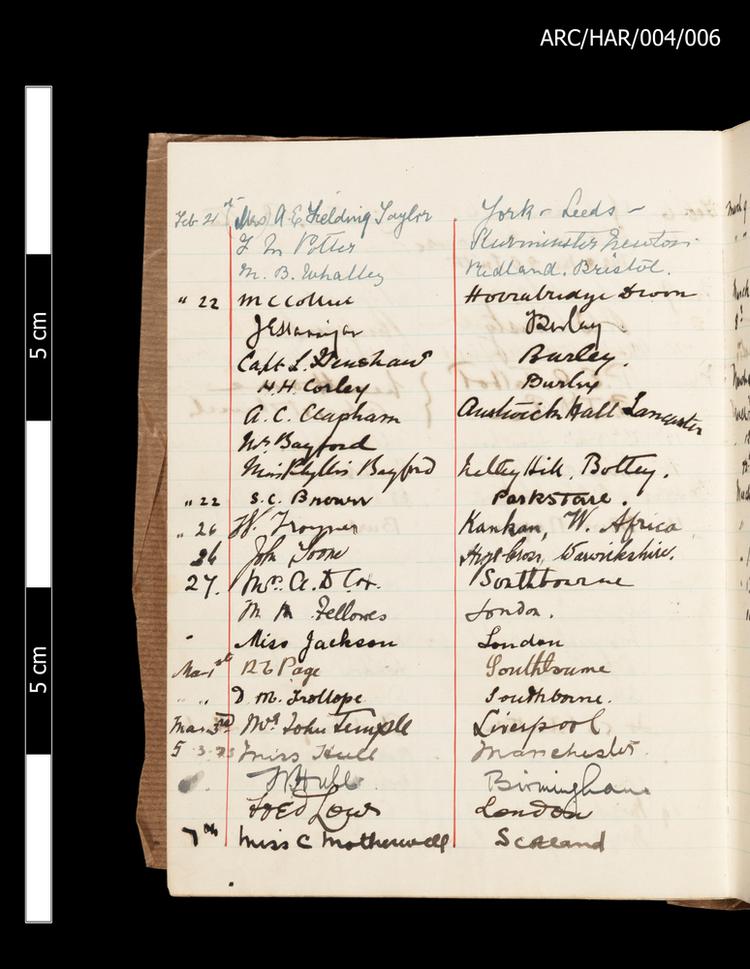 ARC/HAR/004/006
5 cm
5 cm
Feb 21st Mrs A E Fielding Taylor York - Leeds -
F M Potter Sturminster Newton
M. B. Whatley Redland. Bristol.
" 22 Horrabridge Devon
Burley
Capt L. Henshaw Burley.
H. H. Corley Burley
A. C. Clapham Austwick Hall Lancaster
Mr Bayford
Miss Phyllis Bayford Netley Hill, Botley.
" 22 S. C. Brown Parkstone.
" 26 W. Kankan, W. Africa
26 John Toone High Cross, Warwickshire.
27. Mrs. A. D Cox. Southbourne
M M Fellowes London.
" Miss Jackson London
Mar 1st Page Southbourne
" " D. M. Trollope Southborne.
Mar 3rd Mrs John Temple Liverpool
5 3. 23 Miss Hull Manchester.
Hull Birmingham
Fred Lows London
7th Miss C Motherwell Scotland